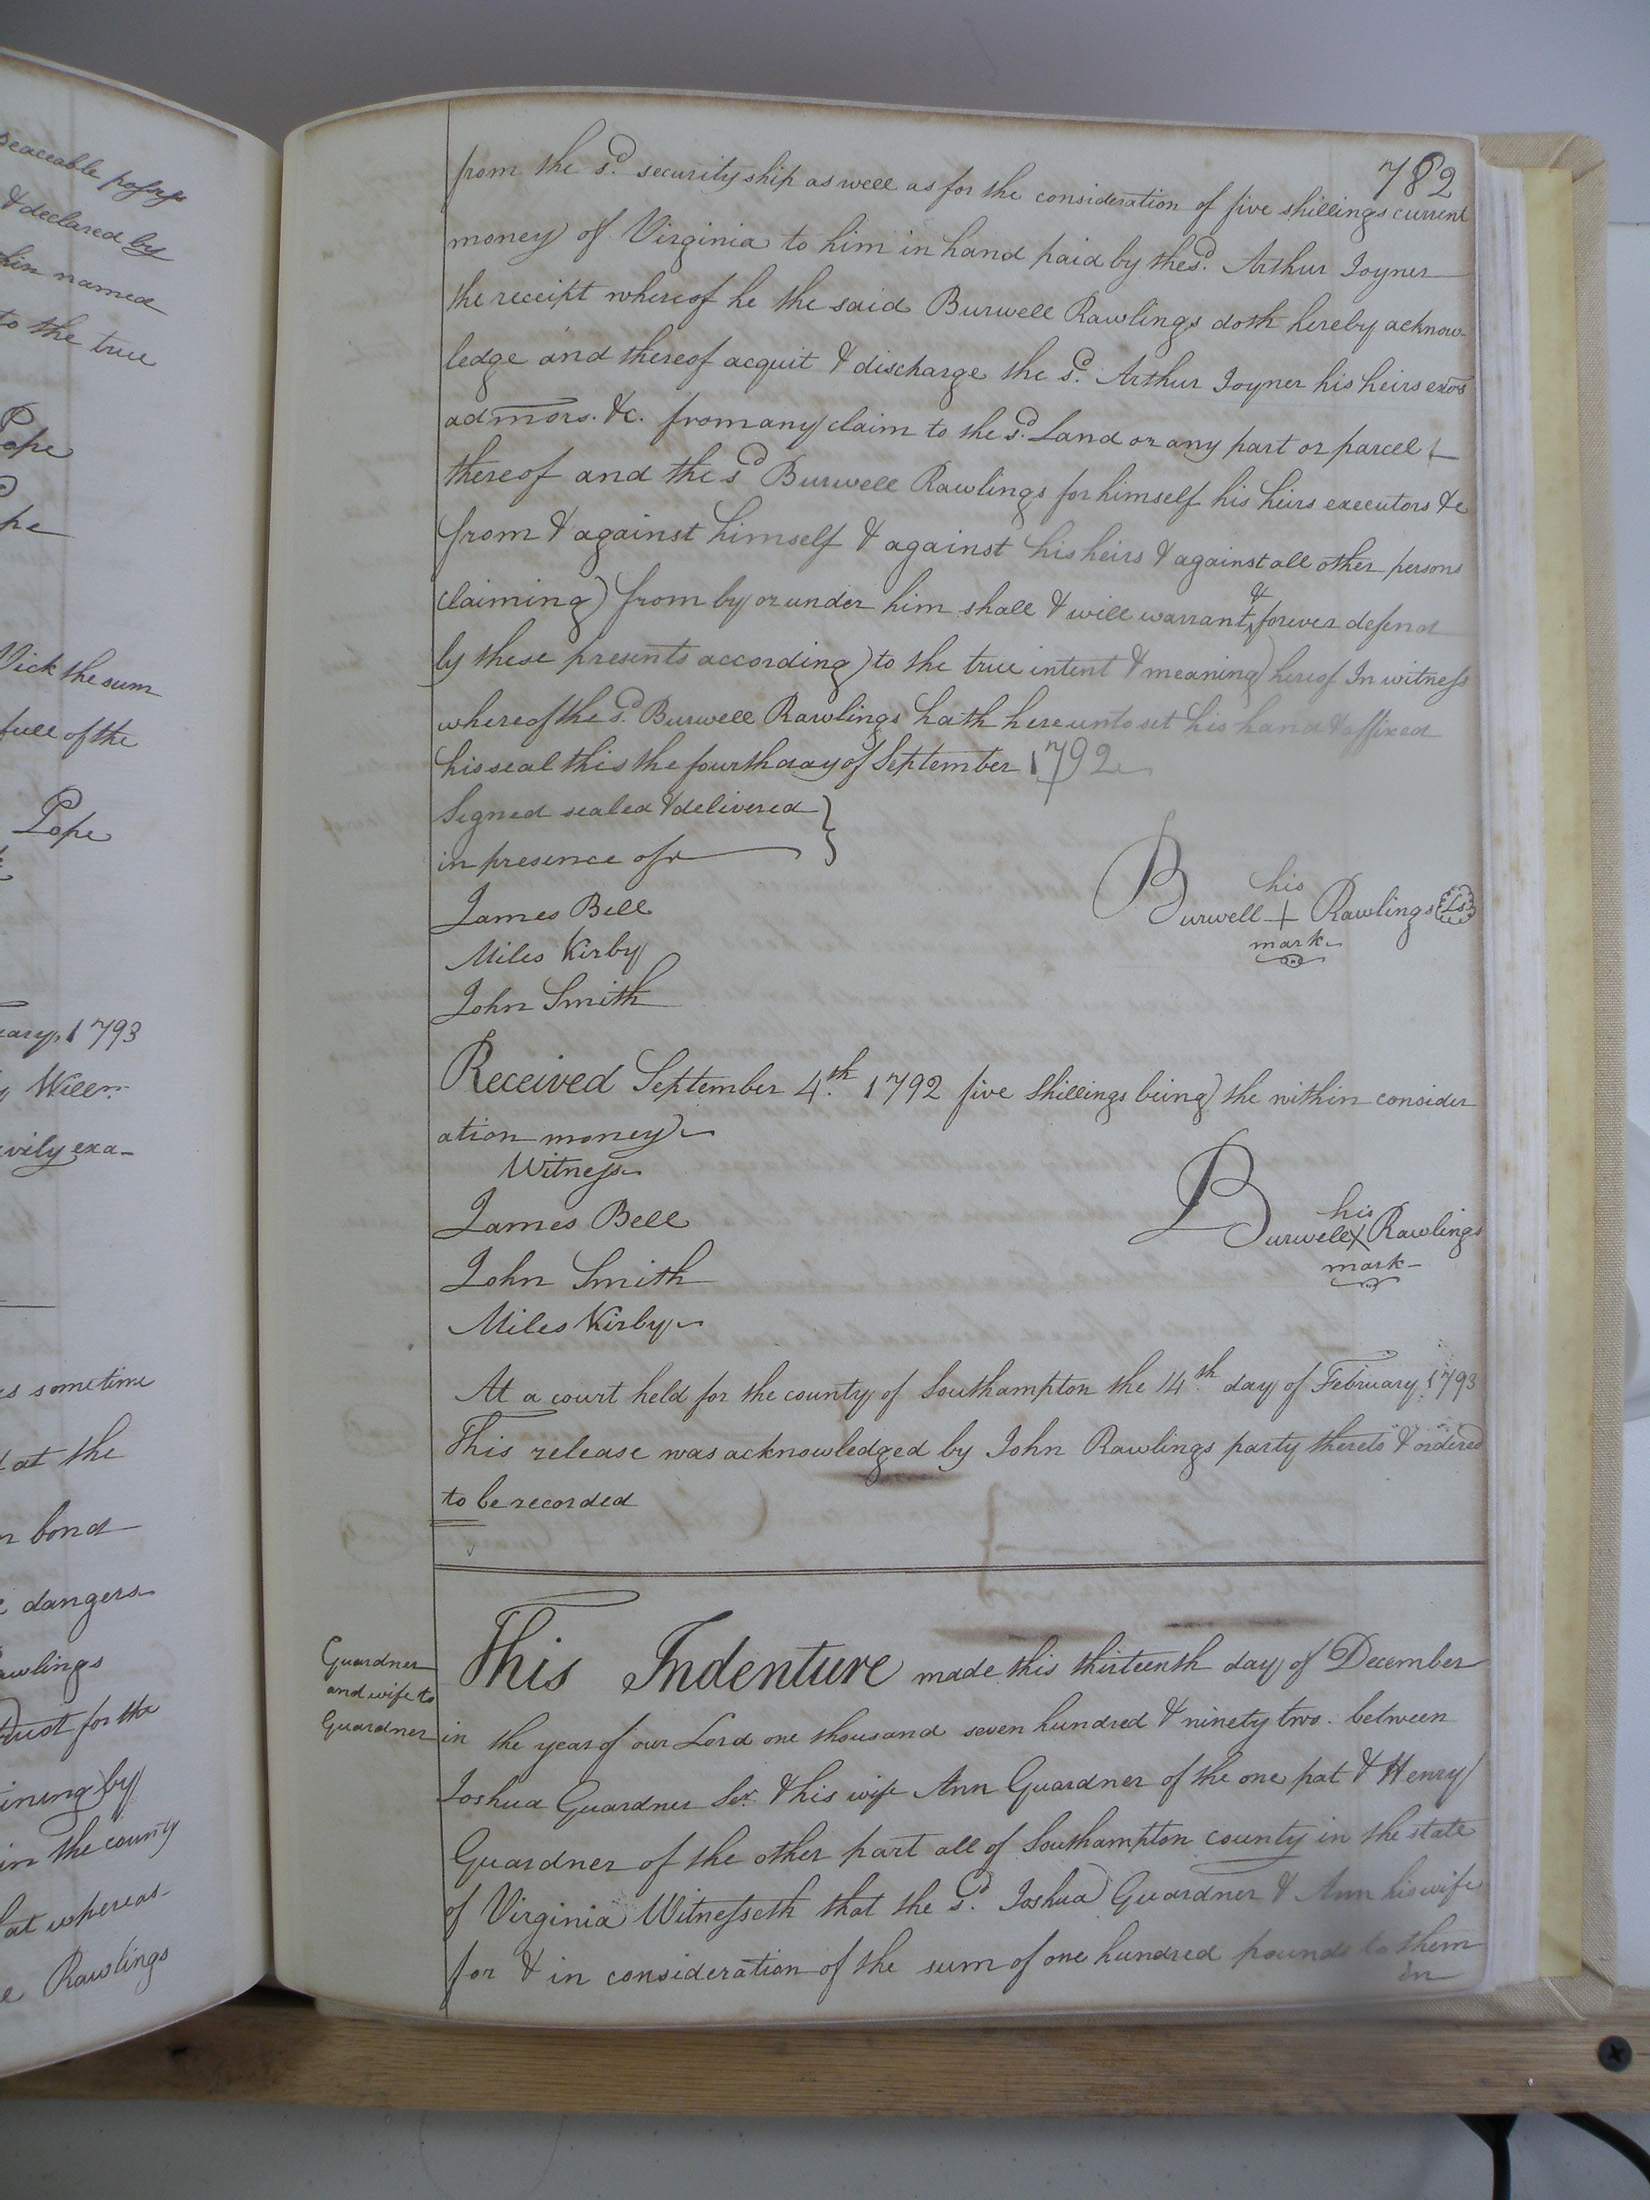 peaceable possess
& declared by
hin named
to the true
Pope
pe
Vick the sum
full of the
Pope
uary 1793
Willm.
ivily exa-
s sometime
at the
n bond
dangers
awlings
Trust for the
ining by
in the county
hat whereas
e Rawlings
782
from the sd. securityship as well as for the consideration of five shillings current
money of Virginia to him in hand paid by the sd. Arthur Joyner
the receipt whereof he the said Burwell Rawlings doth hereby acknow-
ledge and thereof acquit & discharge the sd. Arthur Joyner his heirs exors
admors. &c. from any claim to the sd. Land or any part or parcel
thereof and the sd Burwell Rawlings for himself his heirs executors &c
from & against himself & against his heirs & against all other persons
claiming from by or under him shall & will warrant & forever defend
by these presents according to the true intent & meaning hereof In witness
whereof the sd. Burwell Rawlings hath hereunto set his hand & affixed
his seal this the fourth day of September 1792
Signed sealed & delivered
in presence of
James Bell
Miles Kirby
John Smith
his
Burwell + Rawlings Ls
mark
Received September 4th. 1792 five Shillings being the within consider
ation money
Witness
James Bell
John Smith
Miles Kirby
his
Burwell X Rawlings
mark
At a court held for the county of Southampton the 14th. day of February 1793
This release was acknowledged by John Rawlings party thereto & ordered
to be recorded
Guardner
and wife to
Guardner
This Indenture made this thirteenth day of December
in the year of our Lord one thousand seven hundred & ninety two between
Joshua Guardner Sr. & his wife Ann Guardner of the one pat & Henry
Guardner of the other part all of Southampton county in the state
of Virginia Witnesseth that the sd. Joshua Guardner & Ann his wife
for & in consideration of the sum of one hundred pounds to them
in